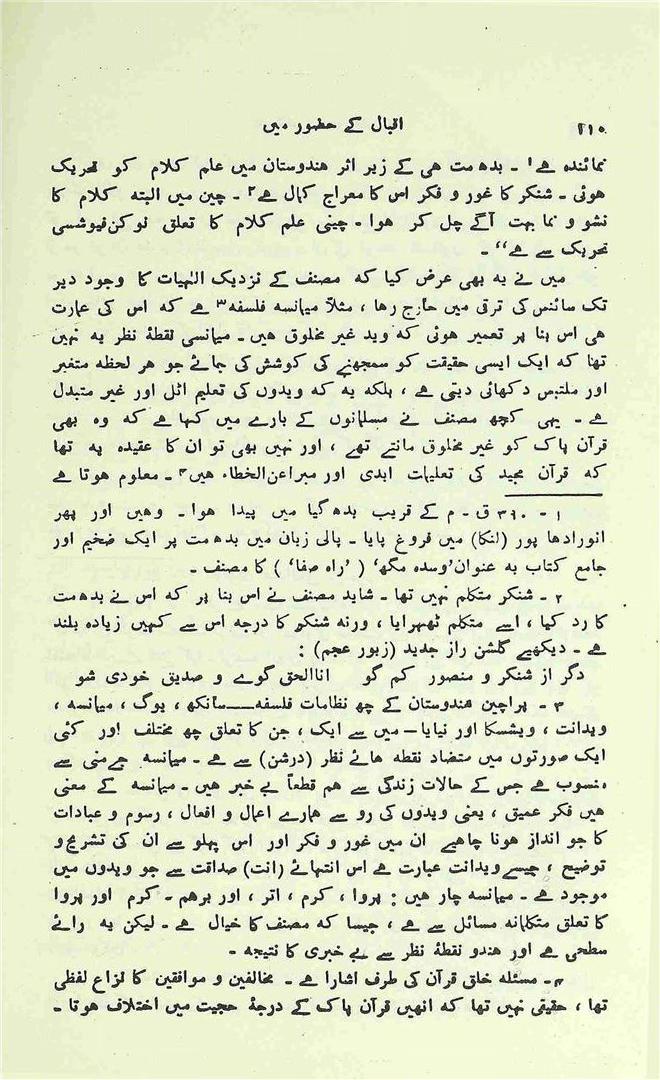 ۲۱۰ اقبال کے حضور میں
نمائندہ ہے۱ - بدھ مت ہی کے زیر اثر ہندوستان میں علم کلام کو تحریک
ہوئی - شنکر کا غور و فکر اس کا معراج کمال ہے۲ - چین میں البتہ کلام کا
نشو و نما بہت آگے چل کر ہوا - چینی علم کلام کا تعلق نوکن‌فیوشسی
تحریک سے ہے“ -
میں نے یہ بھی عرض کیا کہ مصنف کے نزدیک الٰہیات کا وجود دیر
تک سائنس کی ترقی میں حارج رہا ، مثلاً میمانسہ فلسفہ۳ ہے کہ اس کی عمارت
ہی اس بنا پر تعمیر ہوئی کہ وید غیر مخلوق ہیں - میمانسی نقطۂ نظر یہ نہیں
تھا کہ ایک ایسی حقیقت کو سمجھنے کی کوشش کی جائے جو ہر لحظہ متغیر
اور ملتبس دکھائی دیتی ہے ، بلکہ یہ کہ ویدوں کی تعلیم اٹل اور غیر متبدل
ہے - یہی کچھ مصنف نے مسلمانوں کے بارے میں کہا ہے کہ وہ بھی
قرآن پاک کو غیر مخلوق مانتے تھے ، اور نہیں بھی تو ان کا عقیدہ یہ تھا
کہ قرآن مجید کی تعلیمات ابدی اور مبراعن‌الخطاء ہیں۴ - معلوم ہوتا ہے
۱ - ۳۹۰ ق - م کے قریب بدھ گیا میں پیدا ہوا - وہیں اور پھر
انورادھا پور (لنکا) میں فروغ پایا - پالی زبان میں بدھ مت پر ایک ضخیم اور
جامع کتاب بہ عنوان ’وسدہ مگھ‘ (’راہ صفا‘) کا مصنف -
۲ - شنکر متکلم نہیں تھا - شاید مصنف نے اس بنا پر کہ اس نے بدھ مت
کا رد کیا ، اسے متکلم ٹھہرایا ، ورنہ شنکر کا درجہ اس سے کہیں زیادہ بلند
ہے - دیکھیے گلشن راز جدید (زبور عجم) :
دگر از شنکر و منصور کم گو اناالحق گوے و صدیق خودی شو
۳ - پراچین ہندوستان کے چھ نظامات فلسفہ——سانکھ ، یوگ ، میمانسہ ،
ویدانت ، ویشسکا اور نیایا — میں سے ایک ، جن کا تعلق چھ مختلف اور کئی
ایک صورتوں میں متضاد نقطہ ہائے نظر (درشن) سے ہے - میمانسہ جے‌منی سے
منسوب ہے جس کے حالات زندگی سے ہم قطعاً بے خبر ہیں - میمانسہ کے معنی
ہیں فکر عمیق ، یعنی ویدوں کی رو سے ہمارے اعمال و افعال ، رسوم و عبادات
کا جو انداز ہونا چاہیے ان میں غور و فکر اور اس پہلو سے ان کی تشریح و
توضیح ، جیسے ویدانت عبارت ہے اس انتہائے (انت) صداقت سے جو ویدوں میں
موجود ہے - میمانسہ چار ہیں : پروا ، کرم ، اتر ، اور برھم - کرم اور پروا
کا تعلق متکلمانہ مسائل سے ہے ، جیسا کہ مصنف کا خیال ہے - لیکن یہ رائے
سطحی ہے اور ہندو نقطۂ نظر سے بے خبری کا نتیجہ -
۴ - مسئلہ خلق قرآن کی طرف اشارا ہے - مخالفین و موافقین کا نزاع لفظی
تھا ، حقیقی نہیں تھا کہ انھیں قرآن پاک کے درجۂ حجیت میں اختلاف ہوتا -